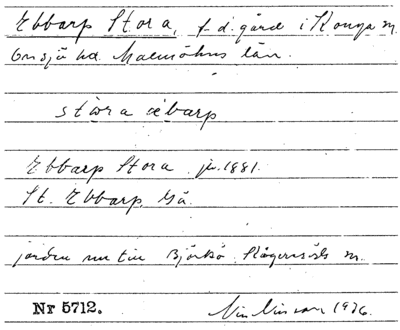 Ebbarp Stora, f. d. gård i Konga sn.
Onsjö hd. Malmöhus län.
stora ebarp
Ebbarp Stora jr. 1881.
St. Ebbarp, Gä.
jorden nu till Björkö Kågeröds sn.
Nr 5712.
1936.